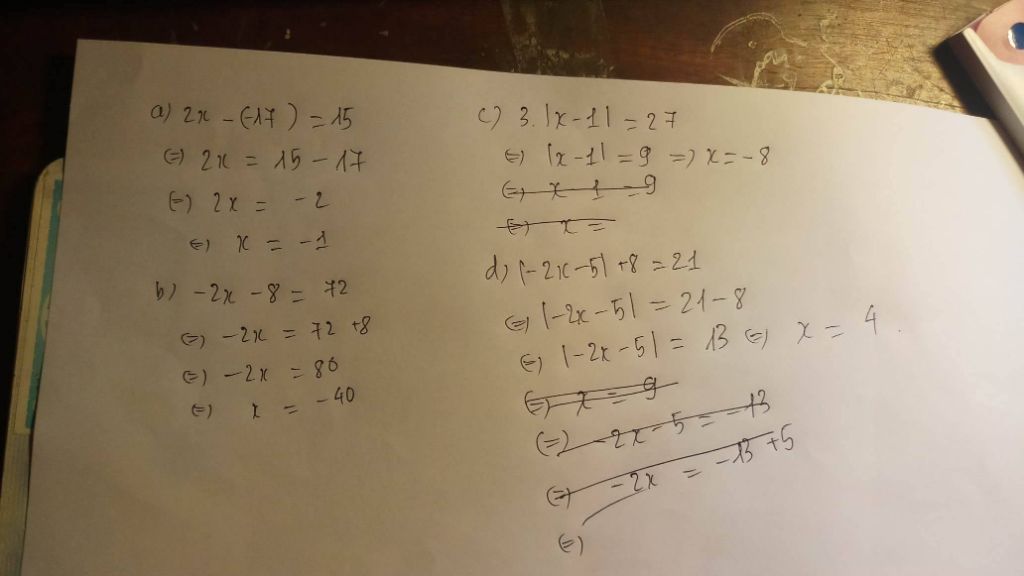 a) 2x - (-17) = 15
(=) 2x = 15 - 17
(=) 2x = -2
(=) x = -1
b) -2x - 8 = 72
(=) -2x = 72 +8
(=) -2x = 80
(=) x = -40
c) 3.|x-1| = 27
(=) |x-1| = 9 =) x = -8
(=) x - 1 = 9
(=) x =
d) |-2x-5| +8 = 21
(=) |-2x-5| = 21-8
(=) |-2x-5| = 13 (=) x = 4.
(=) x = 9
(=) -2x-5 = -13
(=) -2x = -13 +5
(=)